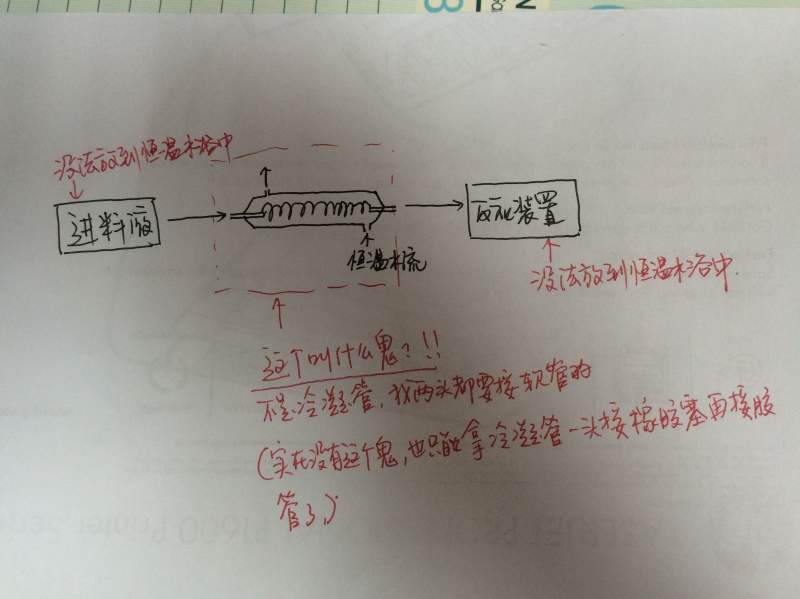 没法放到恒温水浴中
进料液
反应装置
恒温水流
没法放到恒温水浴中.
这个叫什么鬼?!!
不是冷凝管,我两头都要接软管的
(实在没有这个鬼,也只能拿冷凝管一头接橡胶塞再接胶
管了,)